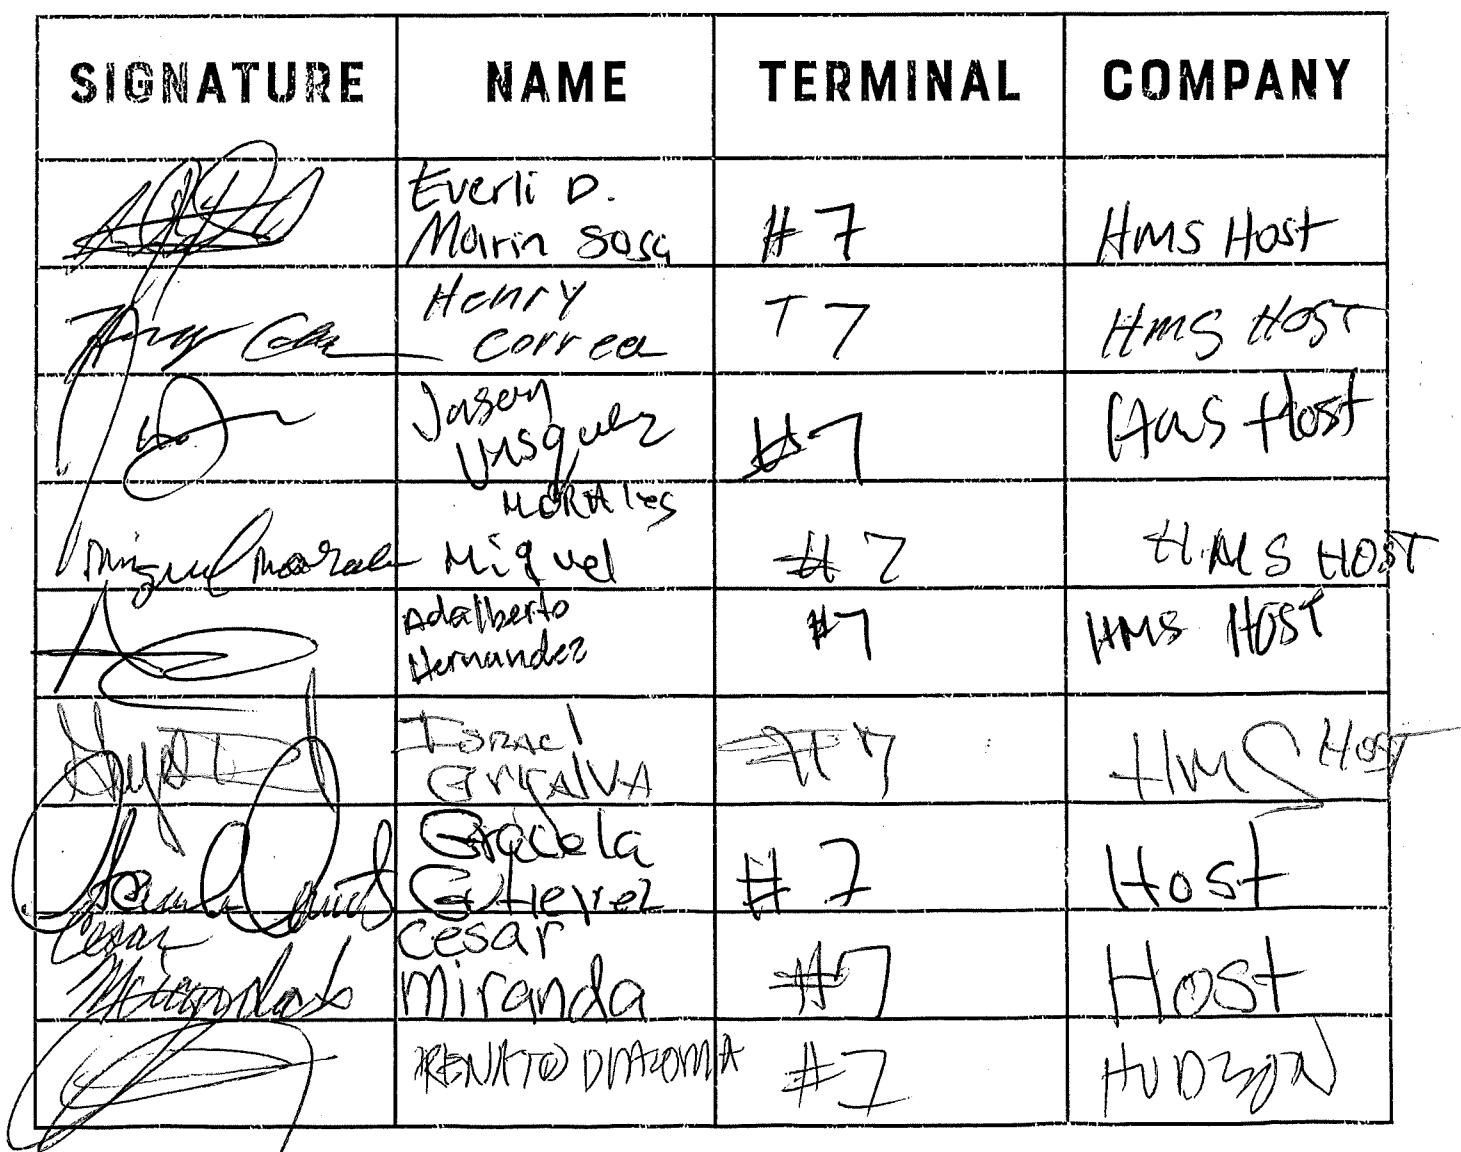 SIGNATURE NAME TERMINAL COMPANY
Everli D.
Marin Sosa #7 HMS Host
Henry
Correa T7 HMS HOST
Jason
Vasquez #7 HMS Host
MORAles
Miguel Morales Miguel #7 H.M S HOST
Adalberto
Hernandez #7 HMS HOST
Israel
GrijALVA #7 HMS HOST
Gracela
Gutierez #7 Host
Cesar Cesar
Miranda Miranda #7 Host
RENATO #7 HUDSON